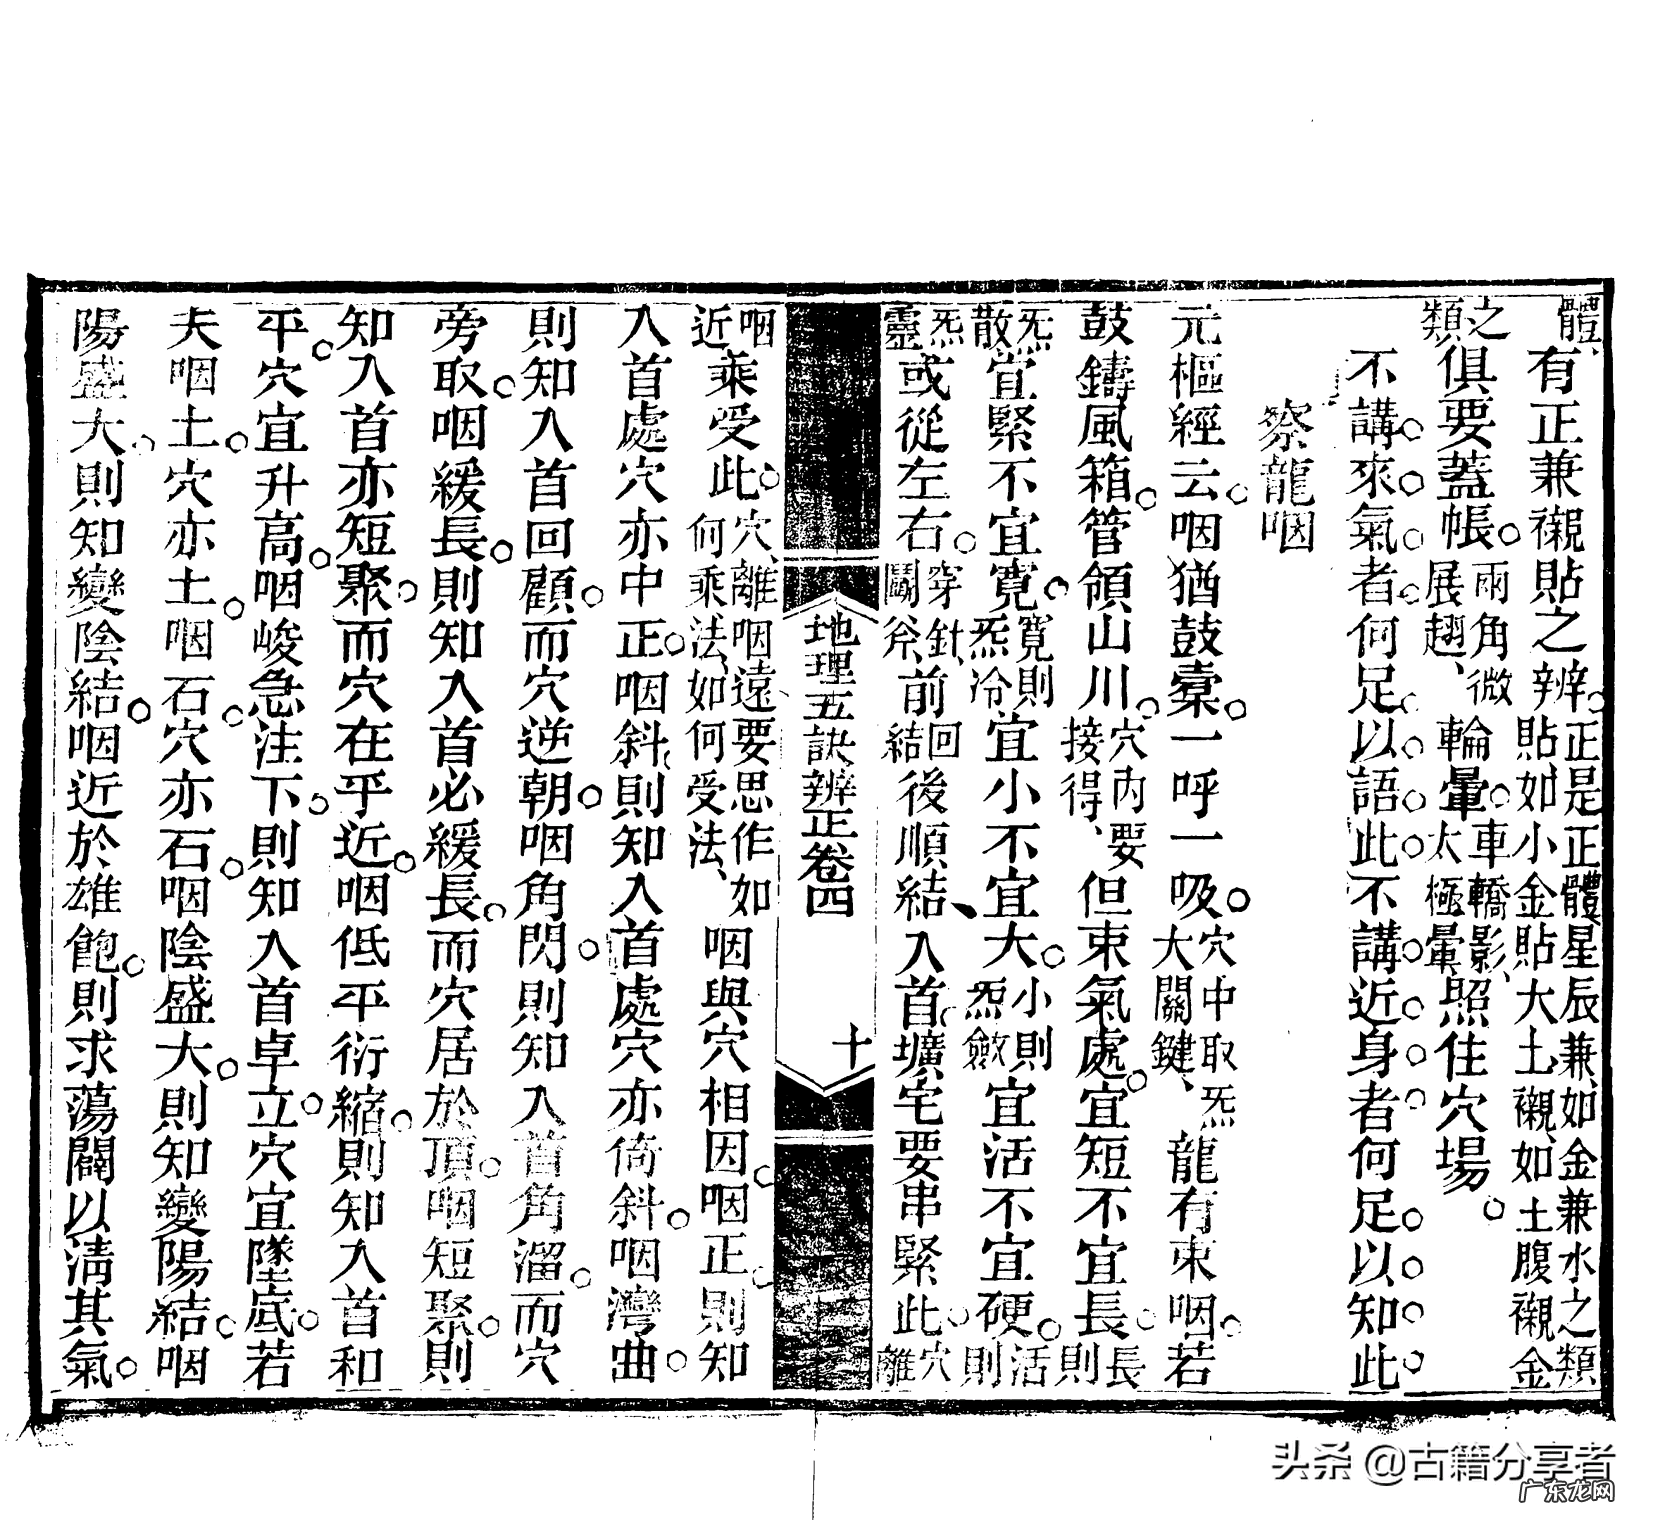 體、有正兼襯貼之辨。正是正體星辰兼、如金兼水之類貼、如小金貼大土襯、如土腹襯金
之類俱要蓋帳。兩角微展翹、輪暈。車轎影、太極暈照住穴場。
不講來氣者何足以語此不講近身者何足以知此
察龍咽
元樞經云。咽猶鼓橐。一呼一吸。穴中取炁大關鍵、龍有束咽。若
鼓鑄風箱。管領山川。穴內要接得、但束氣處。宜短不宜長。長則
炁散宜緊不宜寬。寬則炁冷宜小不宜大。小則炁斂宜活不宜硬。活則
炁靈或從左右。穿針、鬭斧、前回結後順結、入首壙宅要串緊此。穴離
咽近、乘受此。穴、離咽遠要思作如何乘法、如何受法、咽與穴相因。咽正。則知
入首處穴亦中正。咽斜。則知入首處穴亦倚斜。咽灣曲。
則知入首回顧。而穴逆朝。咽角閃。則知入首角溜。而穴
旁取。咽緩長。則知入首必緩長。而穴居於頂。咽短聚。則
知入首亦短聚。而穴在乎近。咽低平衍縮。則知入首和
平。穴宜升高。咽峻急注下。則知入首卓立。穴宜墜底。若
夫咽土。穴亦土。咽石。穴亦石。咽陰盛大。則知變陽結。咽
陽盛大。則知變陰結。咽近於雄飽。則求蕩闢以清其氣。
地理五訣辨正卷四
十
头条 @古籍分享者
广东龙网